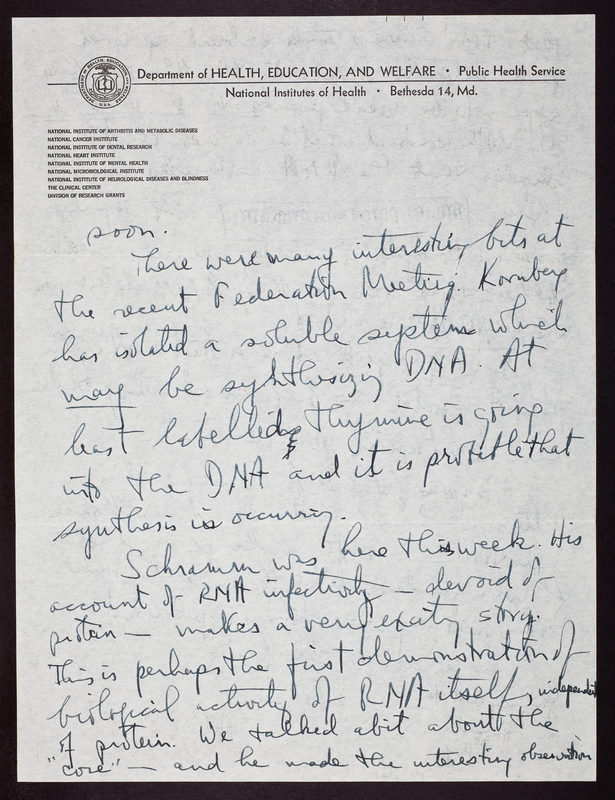 Department of HEALTH, EDUCATION, AND WELFARE · Public Health Service
National Institutes of Health · Bethesda 14, Md.
NATIONAL INSTITUTE OF ARTHRITIS AND METABOLIC DISEASES
NATIONAL CANCER INSTITUTE
NATIONAL INSTITUTE OF DENTAL RESEARCH
NATIONAL HEART INSTITUTE
NATIONAL INSTITUTE OF MENTAL HEALTH
NATIONAL MICROBIOLOGICAL INSTITUTE
NATIONAL INSTITUTE OF NEUROLOGICAL DISEASES AND BLINDNESS
THE CLINICAL CENTER
DIVISION OF RESEARCH GRANTS
soon.
There were many interesting bits at
the recent Federation Meeting. Kornberg
has isolated a soluble system which
may be synthesizing DNA. At
least labelled thymine is going
into the DNA and it is probable that
synthesis is occurring.
Schramm was here this week. His
account of RNA infectivity – devoid of
protein – makes a very exciting story.
This is perhaps the first demonstration of
biological activity of RNA itself, independent
of protein. We talked a bit about the
"core" – and he made the interesting observation